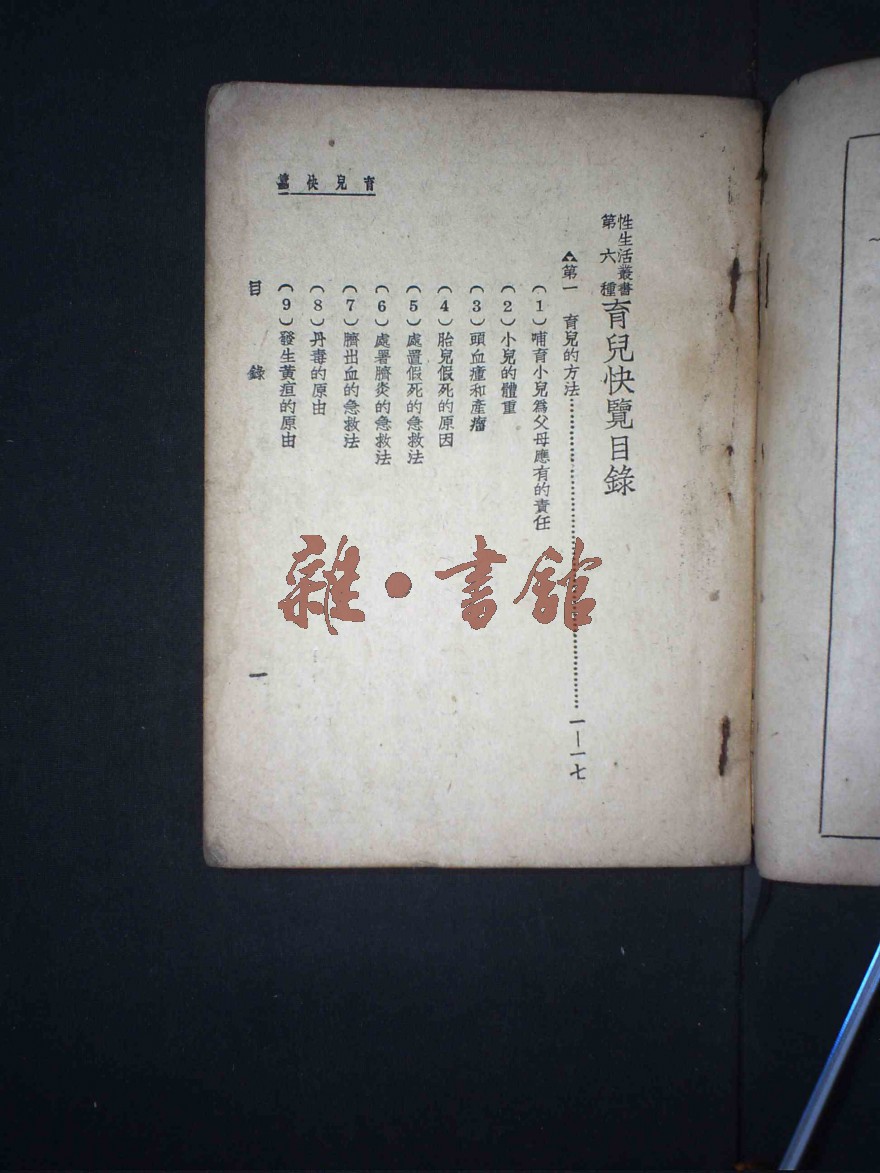 育兒快覽
性生活叢書
第六種
育兒快覽目錄
第一 育兒的方法……一—一七
(1)哺育小兒爲父母應有的責任
(2)小兒的體重
(3)頭血瘇和產瘤
(4)胎兒假死的原因
(5)處置假死的急救法
(6)處署臍炎的急救法
(7)臍出血的急救法
(8)丹毒的原由
(9)發生黃疸的原由
目錄
一
雜·書館